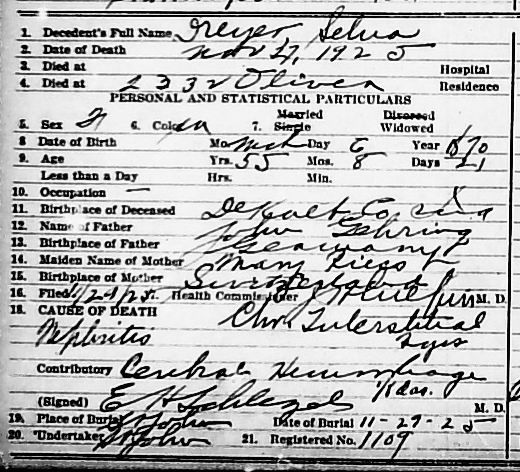 1. Decedent's Full Name Dreyer, Selva
2. Date of Death Nov 27, 1925
3. Died at Hospital
4. Died at 2332 Oliver Residence
PERSONAL AND STATISTICAL PARTICULARS
5. Sex F 6. Color W 7. Married Single Divorced Widowed
8 Date of Birth Mo. Mch Day 6 Year 1870
9. Age Yrs. 55 Mos. 8 Days 21
Less than a Day Hrs. Min.
10. Occupation —
11. Birthplace of Deceased DeKalb Co Ind
12. Name of Father John Gehring
13. Birthplace of Father Germany
14. Maiden Name of Mother Mary
15. Birthplace of Mother Switzerland
16. Filed 11/29/25. Health Commissioner M. D.
18. CAUSE OF DEATH Chr. Interstitial
Nephritis
Contributory Cerebral Hemorrhage
das.
(Signed) E H M. D.
19. Place of Burial St John Date of Burial 11-29-25
20. Undertaker 21. Registered No. 1109